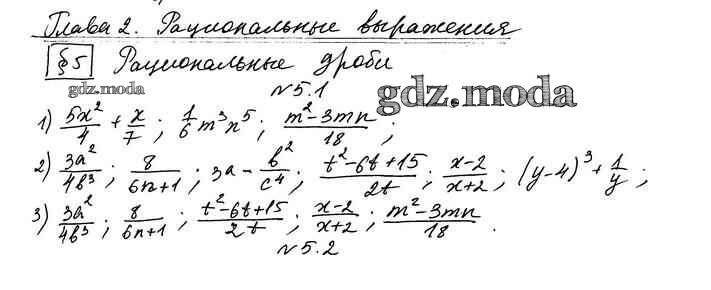 Глава 2. Рациональные выражения
§5 Рациональные дроби
gdz.moda
№5.1
gdz.moda
1) 5x²/4 + x/7; 1/6 m³n⁵; m²-3mn/18;
2) 3a²/4b³; 8/6n+1; 3a - b²/c⁴; t²-6t+15/2t; x-2/x+2; (y-4)³+1/y;
3) 3a²/4b³; 8/6n+1; t²-6t+15/2t; x-2/x+2; m²-3mn/18.
№5.2